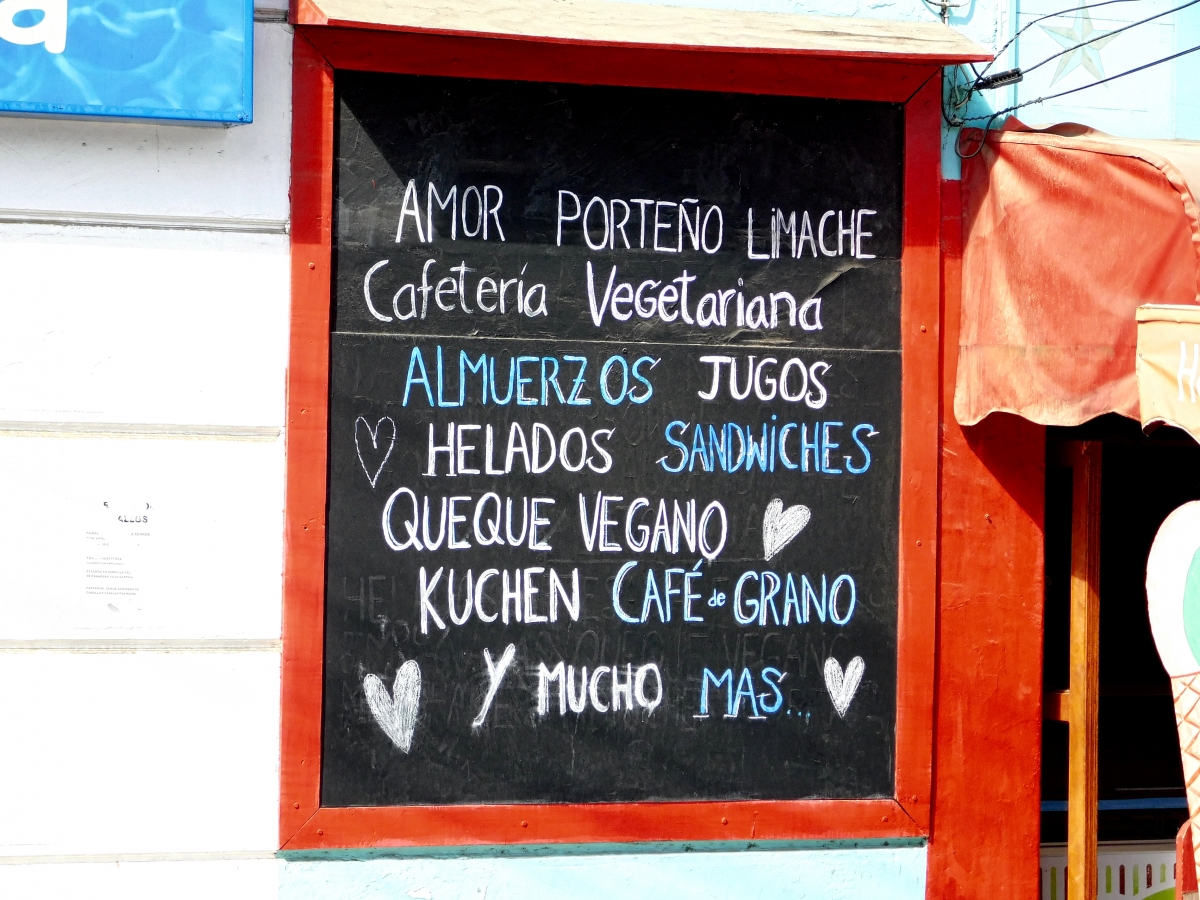 a
AMOR PORTEÑO LiMACHE
Cafetería Vegetariana
ALMUERZOS JUGOS
HELADOS SANDWiCHES
QUEQUE VEGANO
KUCHEN CAFÉ de GRANO
Y MUCHO MAS...